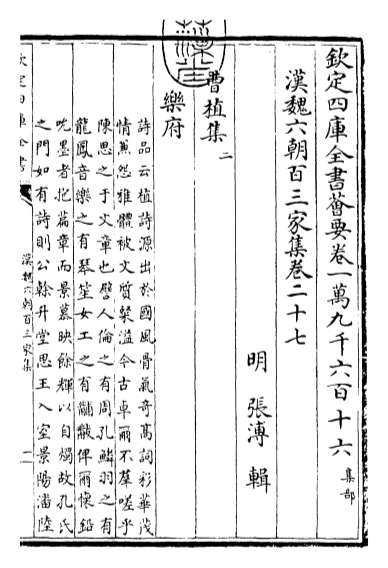 欽定四庫全書薈要卷一萬九千六百十六 集部
漢魏六朝百三家集卷二十七
明 張溥 輯
曹植集 二
樂府
詩品云植詩源出於國風骨氣奇高詞彩華茂
情兼怨雅體被文質粲溢今古卓爾不羣嗟乎
陳思之于文章也譬人倫之有周孔鱗羽之有
龍鳳音樂之有琴笙女工之有黼黻俾爾懷鉛
吮墨者抱篇章而景慕映餘輝以自燭故孔氏
之門如有詩則公幹升堂思王入室景陽潘陸
欽定四庫全書
漢魏六朝百三家集
一